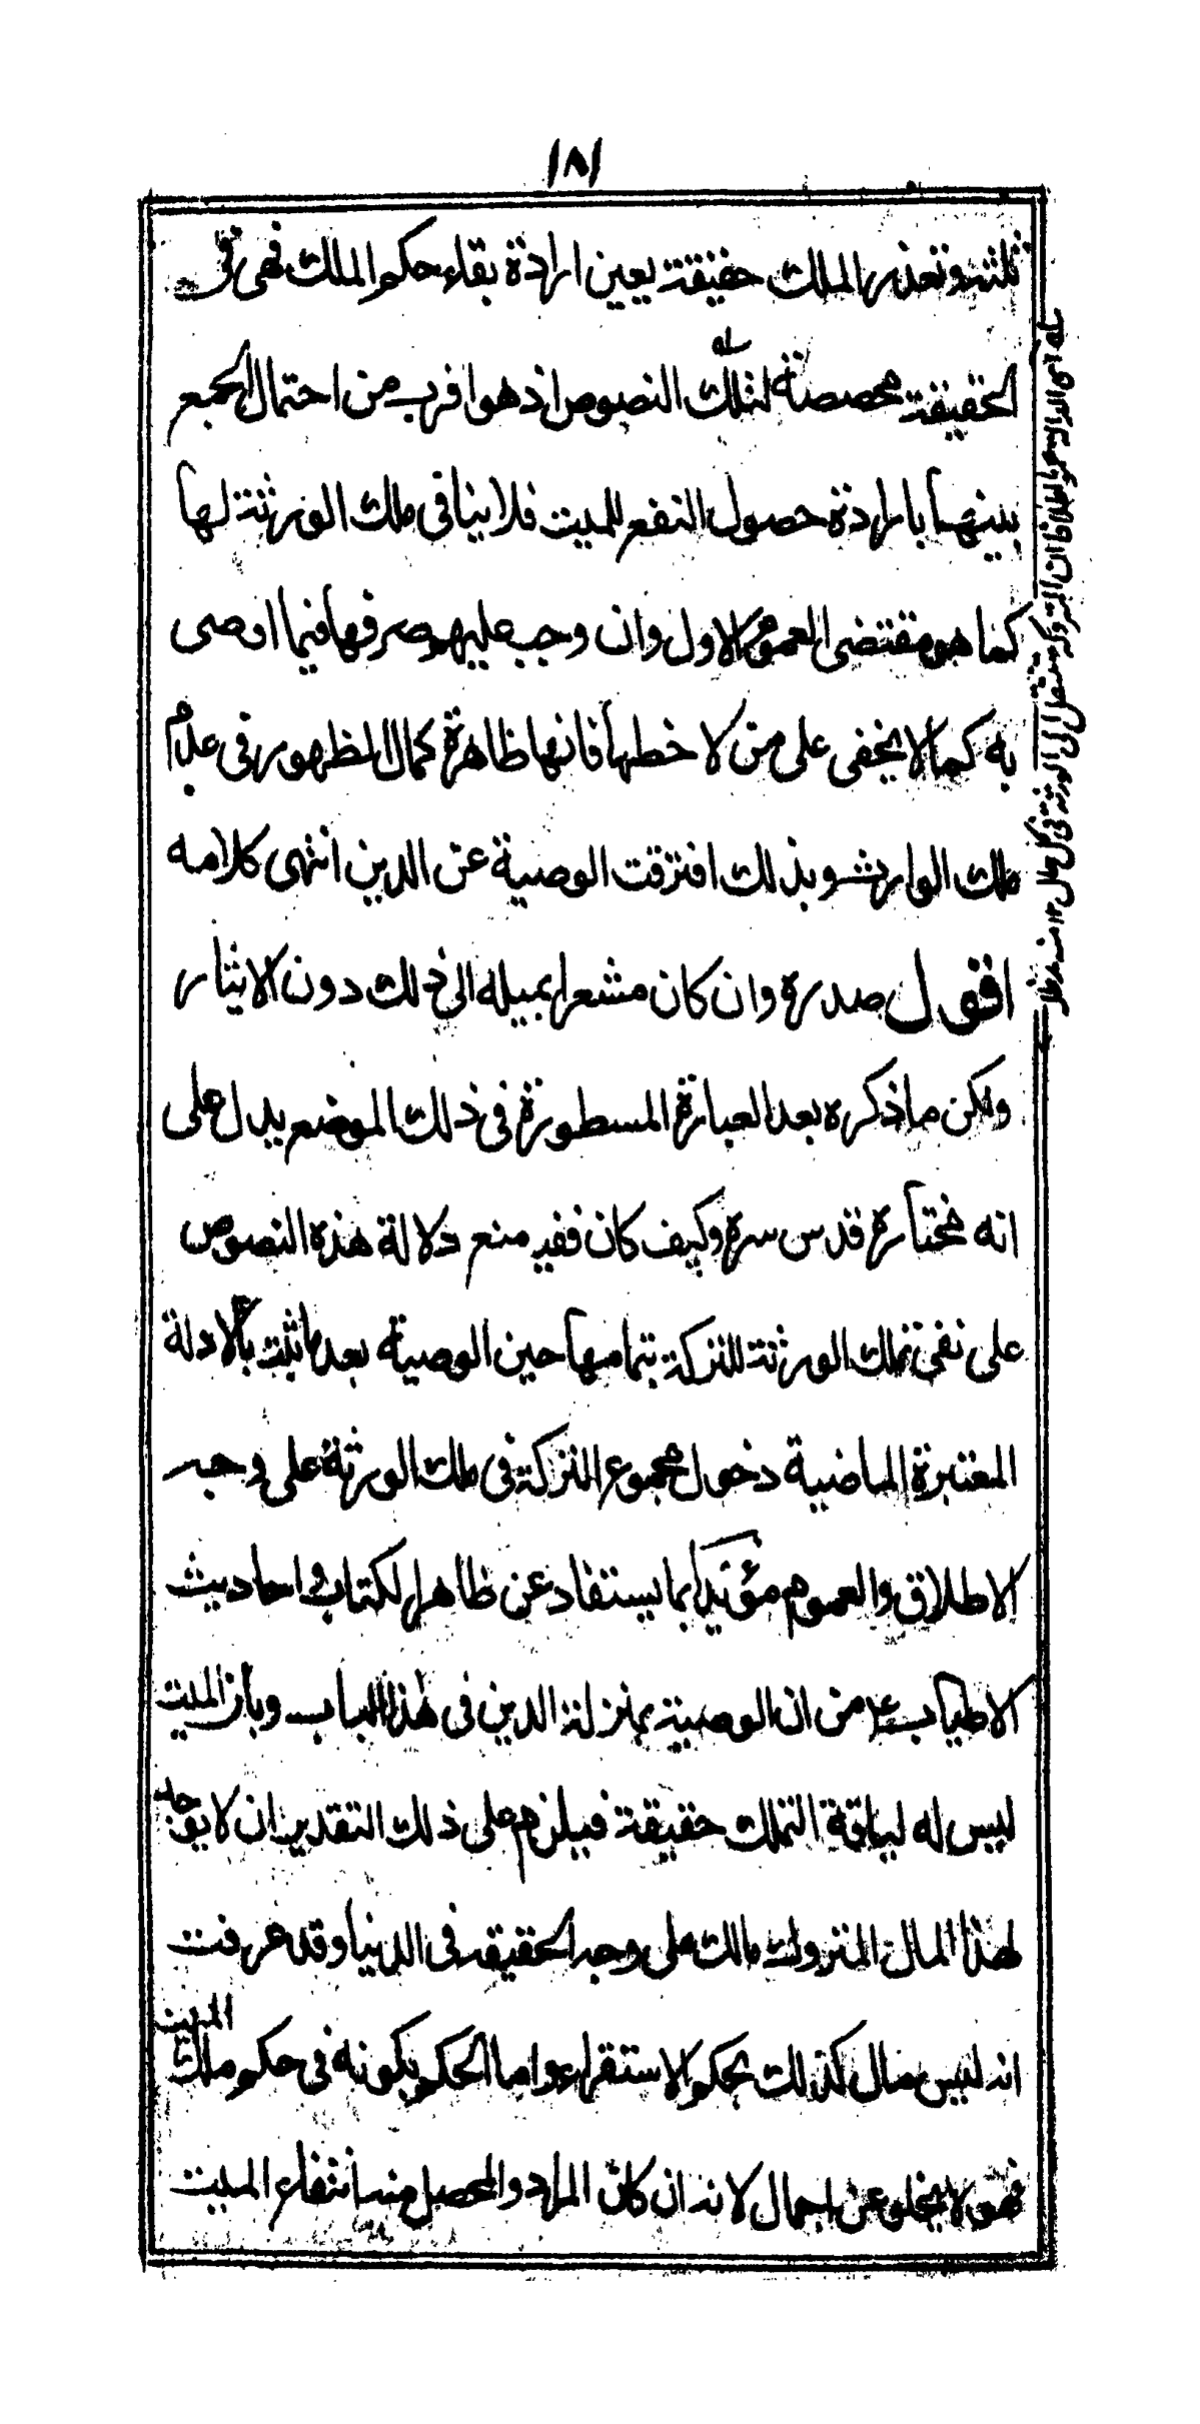 ١٨١
ثلثه وتعذر الملك حقيقة يعين ارادة بقاء حكم الملك فهى فى
الحقيقة مخصصة لتلك النصوص اذ هو اقرب من احتمال الجمع
بينهما بارادة حصول النفع للميت فلا ينافى ملك الورثة لها
كما هو مقتضى العموم الاول وان وجب عليهم صرفها فيما اوصى
به كما لا يخفى على من لاحظها فانها ظاهرة كمال الظهور فى عدم
ملك الوارث وبذلك افترقت الوصية عن الدين انتهى كلامه
اقول صدره وان كان مشعرا بميله الى ذلك دون الايثار
ولكن ما ذكره بعد العبارة المسطورة فى ذلك الموضع يدل على
انه مختاره قدس سره وكيف كان ففيه منع دلالة هذه النصوص
على نفى تملك الورثة للتركة بتمامها حين الوصية بعد ما ثبت بالادلة
المعتبرة الماضية دخول مجموع التركة فى ملك الورثة على وجه
الاطلاق والعموم مؤيدا بما يستفاد عن ظاهر الكتاب و احاديث
الاطياب ع من ان الوصية بمنزلة الدين فى هذا الباب وبان الميت
ليس له لياقة التملك حقيقة فيلزم على ذلك التقدير ان لا يوجد
لهذا المال المتروك مالك على وجه الحقيقه فى الدنيا وقد عرفت
انه ليس مال كذلك بحكم الاستقراء واما الحكم بكونه فى حكم ملك الميت
فهو لا يخلو عن اجمال لانه ان كان المراد والمحصل منه انتفاء الميت
له اى الدالة على اطلاقها ان التركة تنتقل الى الورثة فى كل حال ١٢ منه